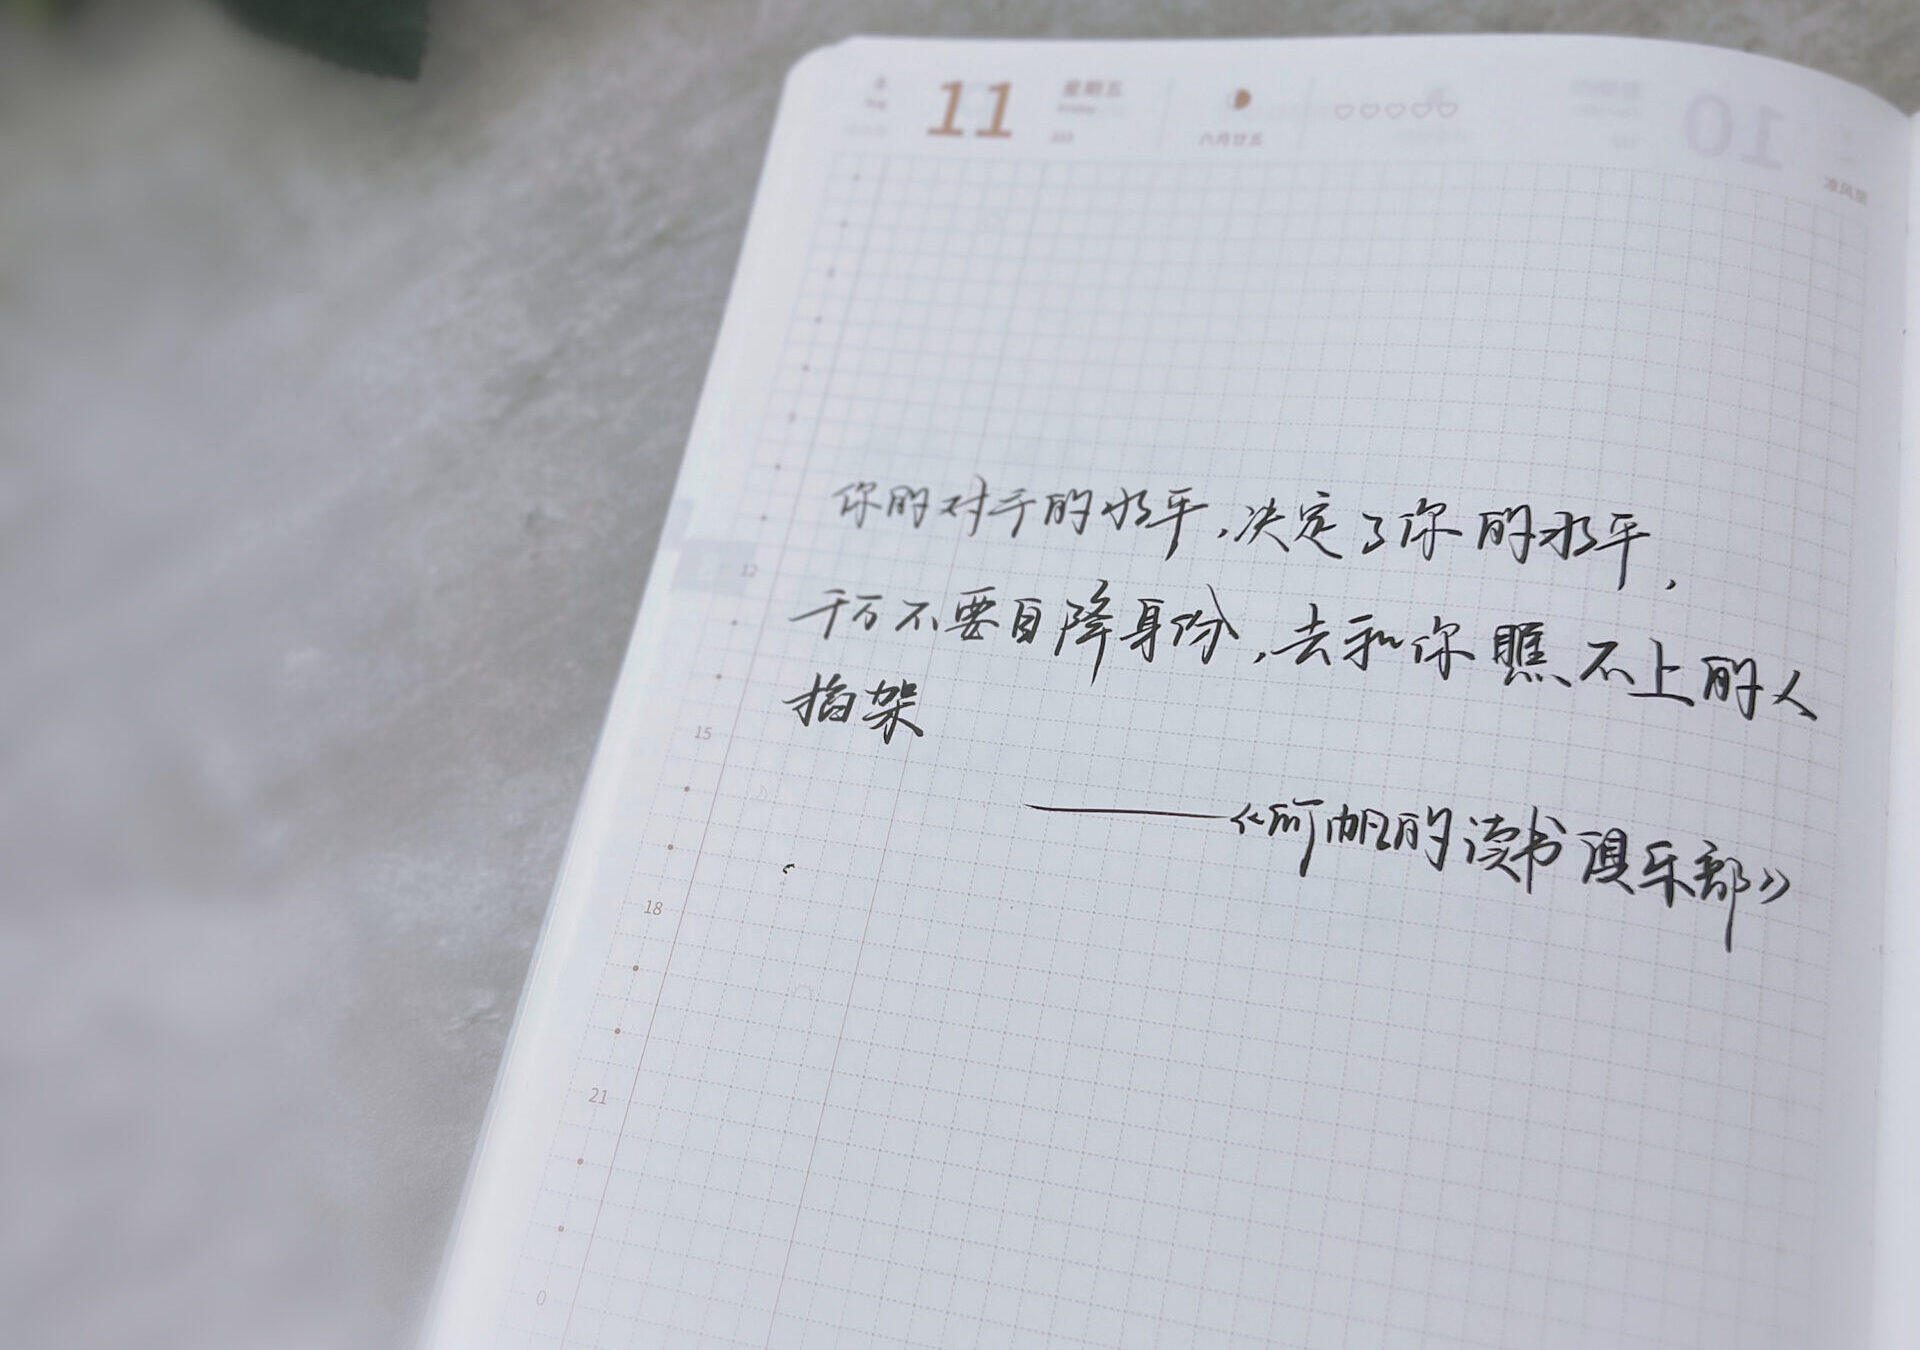 11
星期五
Friday
223
六月廿五
10
凉风至
你的对手的水平，决定了你的水平，
12
千万不要自降身份，去和你瞧不上的人
掐架
15
——《何帆的读书俱乐部》
18
21
0